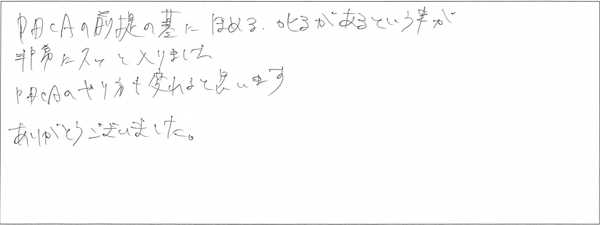 PDCAの前提の基にほめる、叱るがあるという事が
非常にスッと入りました
PDCAのやり方も変れると良います
ありがとうございました。